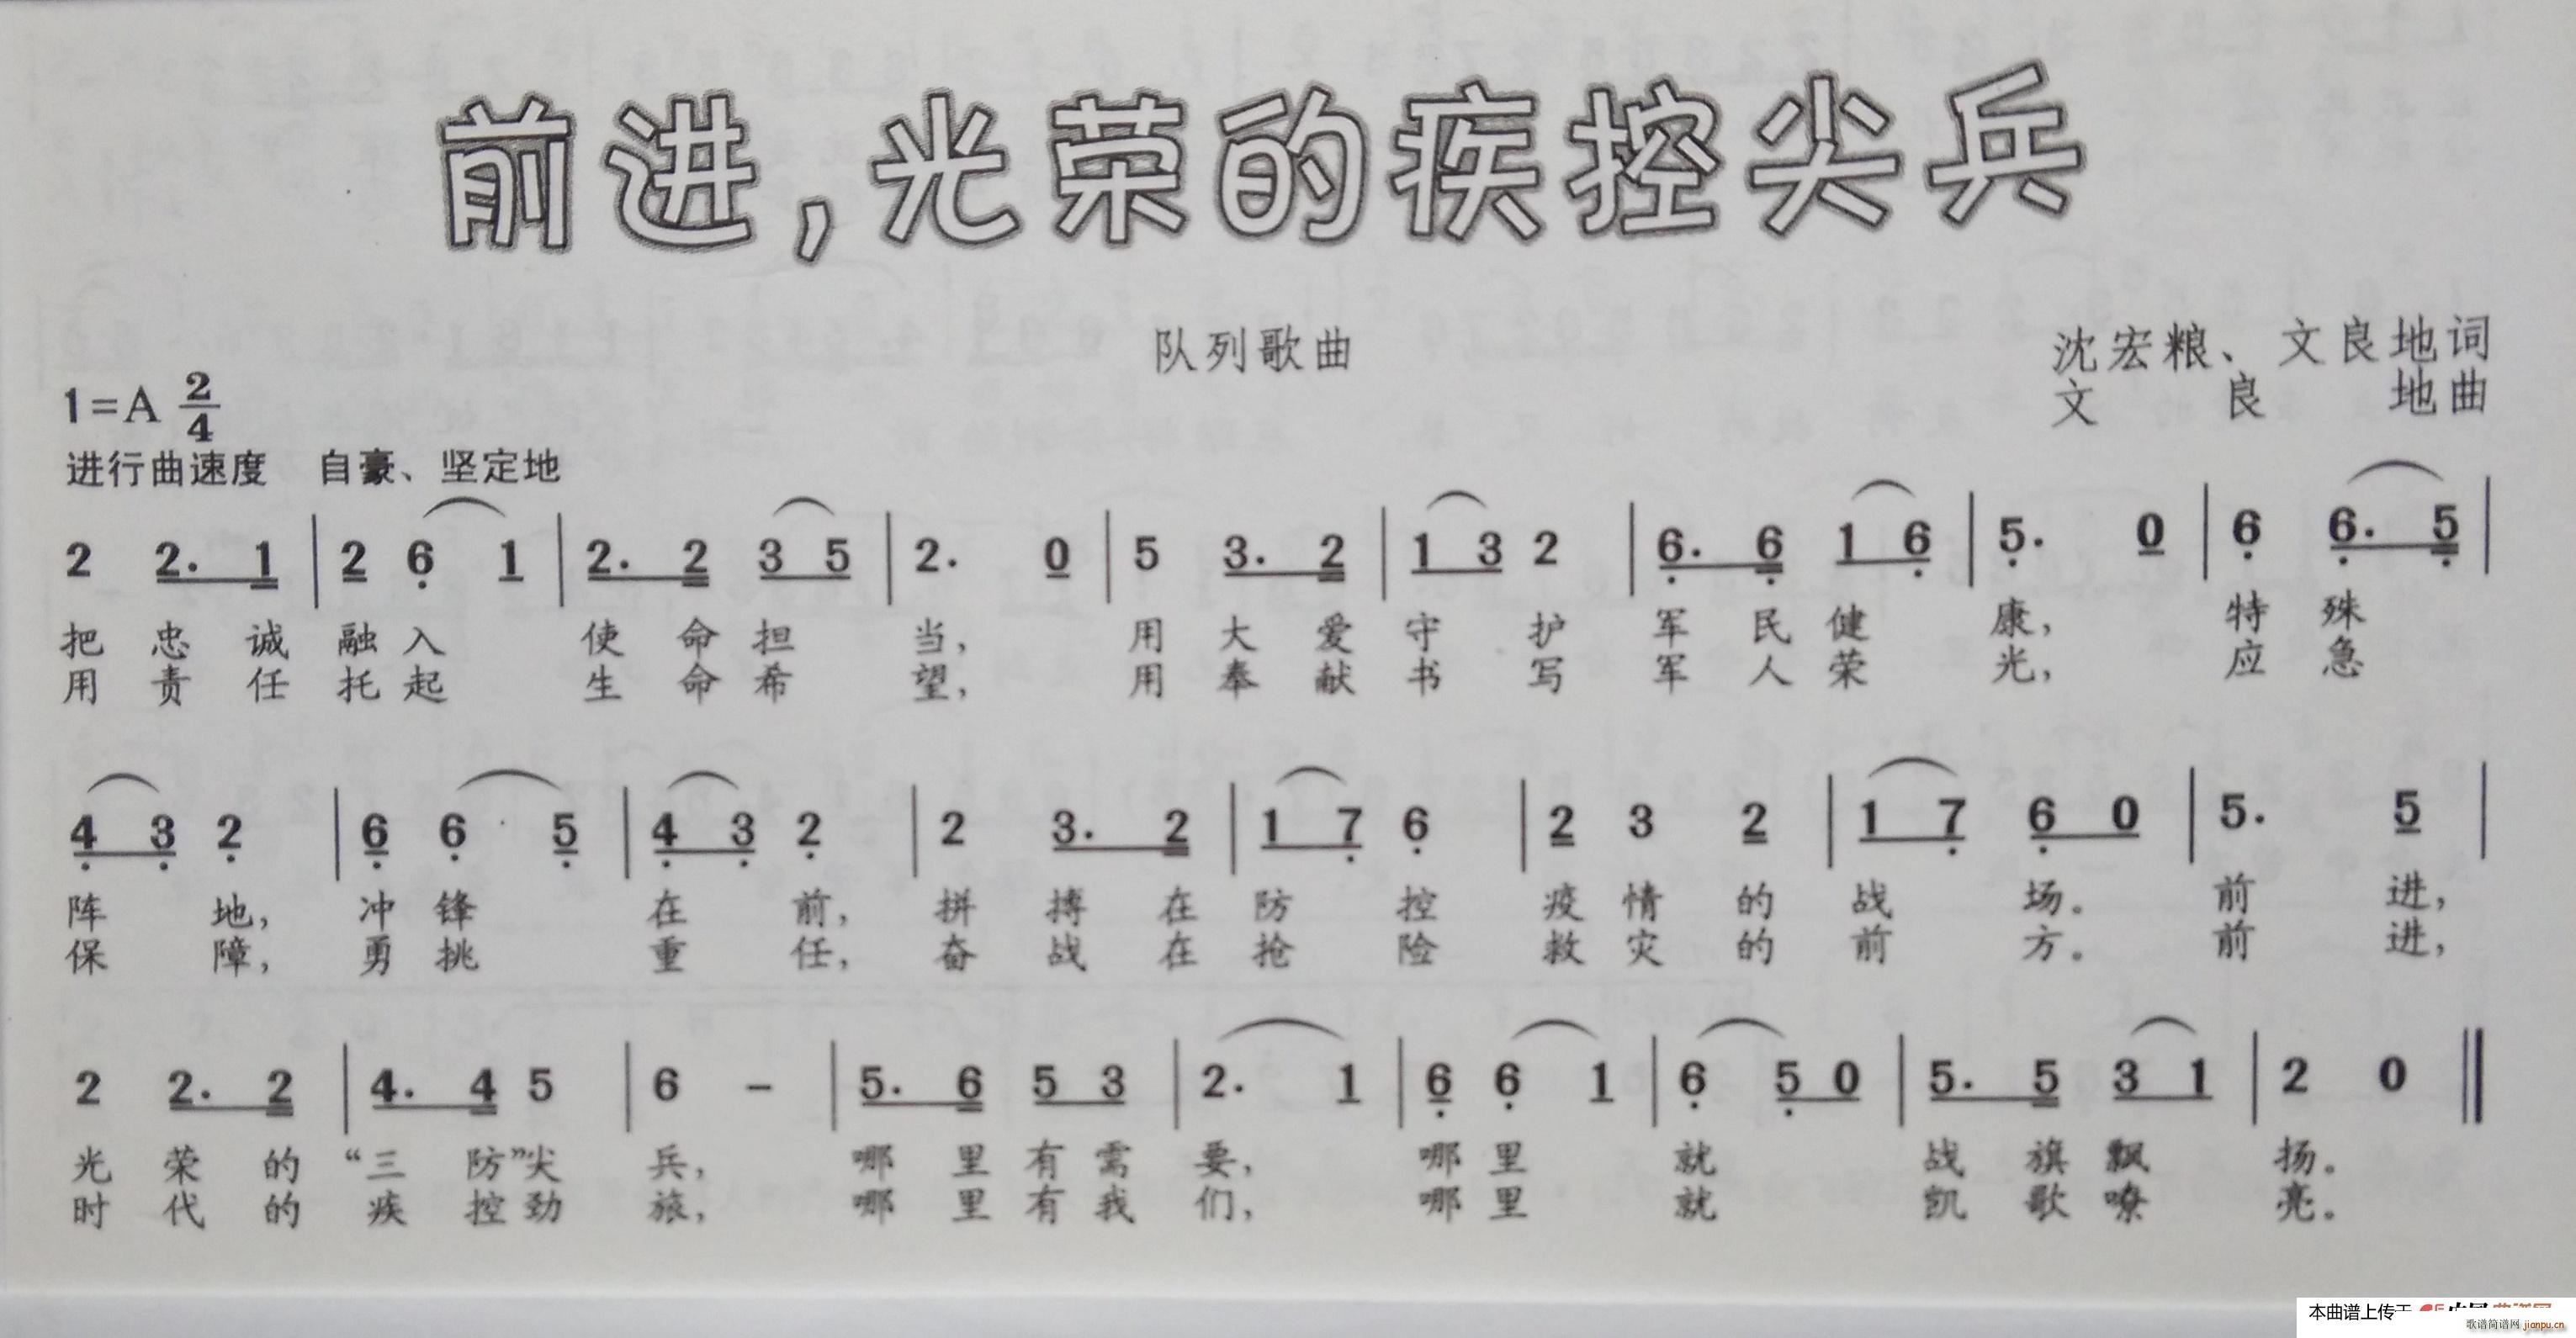 前进，光荣的疾控尖兵
队列歌曲
沈宏粮、文良地词
文良地曲
1=A 2/4
进行曲速度 自豪、坚定地
2 2. 1 | 2 6 1 | 2. 2 3 5 | 2. 0 | 5 3. 2 | 1 3 2 | 6. 6 1 6 | 5. 0 | 6 6. 5 |
把 忠 诚 融 入 使 命 担 当， 用 大 爱 守 护 军 民 健 康， 特 殊
用 责 任 托 起 生 命 希 望， 用 奉 献 书 写 军 人 荣 光， 应 急
4 3 2 | 6 6 5 | 4 3 2 | 2 3. 2 | 1 7 6 | 2 3 2 | 1 7 6 0 | 5. 5 |
阵 地， 冲 锋 在 前， 拼 搏 在 防 控 疫 情 的 战 场。 前 进，
保 障， 勇 挑 重 任， 奋 战 在 抢 险 救 灾 的 前 方。 前 进，
2 2. 2 | 4. 4 5 | 6 – | 5. 6 5 3 | 2. 1 | 6 6 1 | 6 5 0 | 5. 5 3 1 | 2 0 ‖
光 荣 的 “三 防”尖 兵， 哪 里 有 需 要， 哪 里 就 战 旗 飘 扬。
时 代 的 疾 控 劲 旅， 哪 里 有 我 们， 哪 里 就 凯 歌 嘹 亮。
本曲谱上传于
歌谱简谱网 jianpu.cn